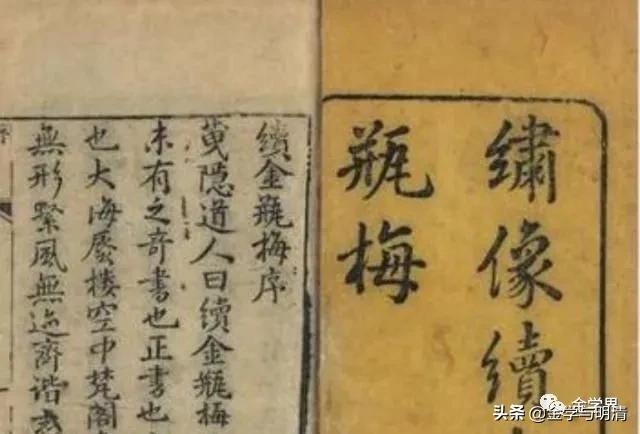 繡像續
瓶梅
續金瓶梅序
隱道人曰續金瓶梅
未有之奇書也正書也
也大海蜃樓空中梵閣
無形繫風無迹齊諧
金学界
头条 @金学与明清